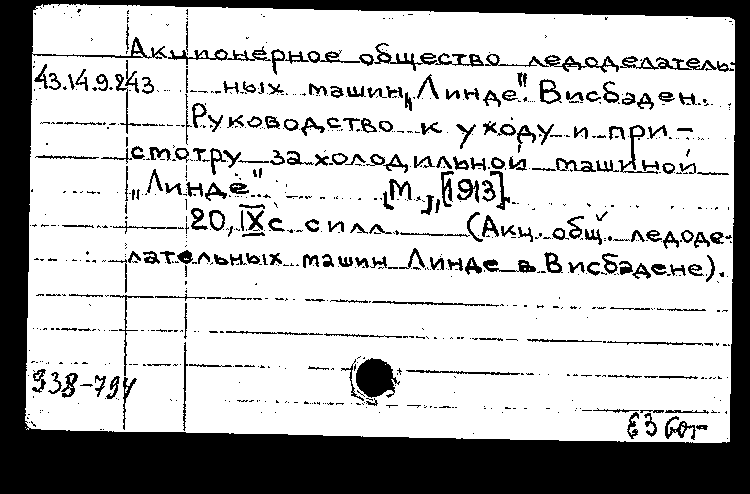 Акционерное общество ледоделатель-
43.14.9.243 ных машин „Линде". Висбаден.
Руководство к уходу и при-
смотру за холодильной машиной
„Линде" [М.], [1913].
20, IX с. с илл. (Акц. общ. ледоде-
лательных машин Линде в Висбадене).
938-794